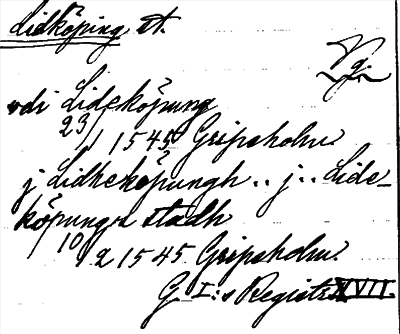 Lidköping st.
Vg.
vdi Lideköpung
23/1 1545 Gripsholm.
j Lidhekøpungh .. j .. Lide-
köpungx stadh
10/2 1545 Gripsholm.
G. I:s Registr. XVII.